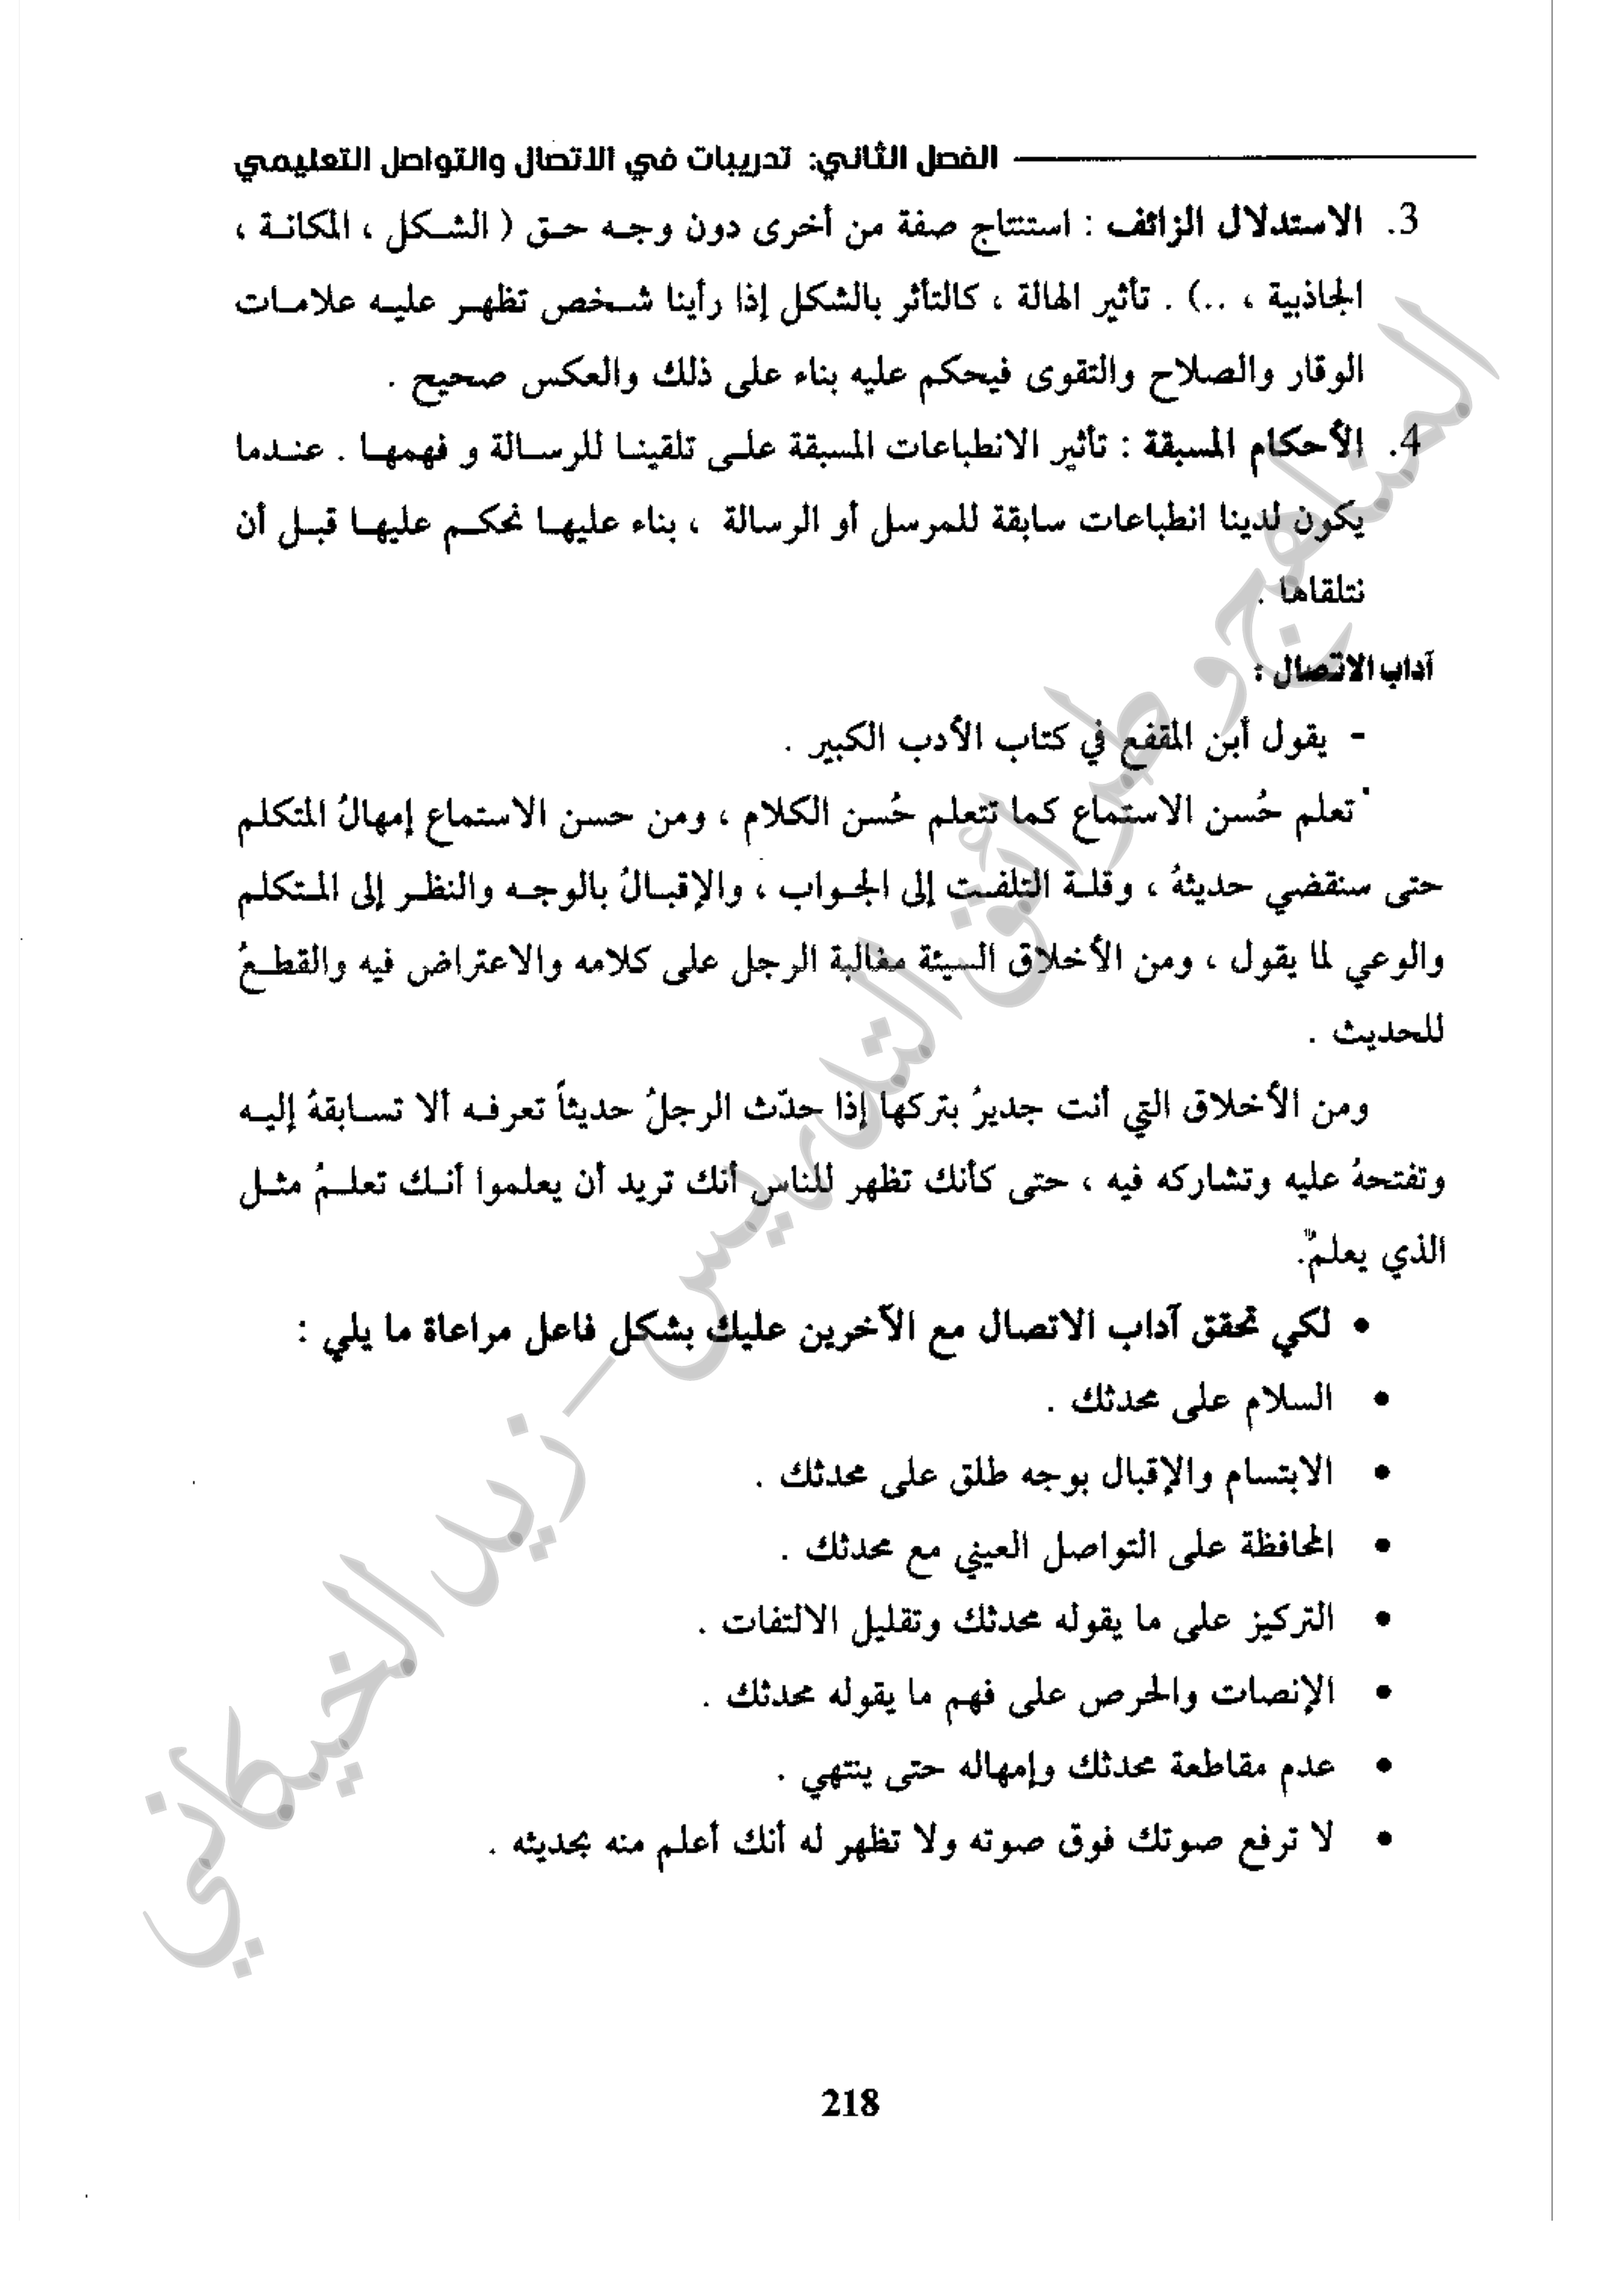 الفصل الثاني: تدريبات في الاتصال والتواصل التعليمي
3. الاستدلال الزائف : استنتاج صفة من أخرى دون وجه حق ( الشكل ، المكانة ،
الجاذبية ، ..) . تأثير الهالة ، كالتأثر بالشكل إذا رأينا شخص تظهر عليه علامات
الوقار والصلاح والتقوى فيحكم عليه بناء على ذلك والعكس صحيح .
4. الأحكام المسبقة : تأثير الانطباعات المسبقة على تلقينا للرسالة و فهمها . عندما
يكون لدينا انطباعات سابقة للمرسل أو الرسالة ، بناء عليها نحكم عليها قبل أن
نتلقاها .
آداب الاتصال :
- يقول أبن المقفع في كتاب الأدب الكبير .
تعلم حُسن الاستماع كما تتعلم حُسن الكلام ، ومن حسن الاستماع إمهالُ المتكلم
حتى سنقضي حديثهُ ، وقلة التلفت إلى الجواب ، والإقبالُ بالوجه والنظر إلى المتكلم
والوعي لما يقول ، ومن الأخلاق السيئة مغالبة الرجل على كلامه والاعتراض فيه والقطعُ
للحديث .
ومن الأخلاق التي أنت جديرُ بتركها إذا حدّث الرجلُ حديثاً تعرفه ألا تسابقهُ إليه
وتفتحهُ عليه وتشاركه فيه ، حتى كأنك تظهر للناس أنك تريد أن يعلموا أنك تعلمُ مثل
الذي يعلمُ".
• لكي تحقق آداب الاتصال مع الآخرين عليك بشكل فاعل مراعاة ما يلي :
• السلام على محدثك .
• الابتسام والإقبال بوجه طلق على محدثك .
• المحافظة على التواصل العيني مع محدثك .
• التركيز على ما يقوله محدثك وتقليل الالتفات .
• الإنصات والحرص على فهم ما يقوله محدثك .
• عدم مقاطعة محدثك وإمهاله حتى ينتهي .
• لا ترفع صوتك فوق صوته ولا تظهر له أنك أعلم منه بحديثه .
218
المناهج وطرائق التدريس – زيد الخيكاني